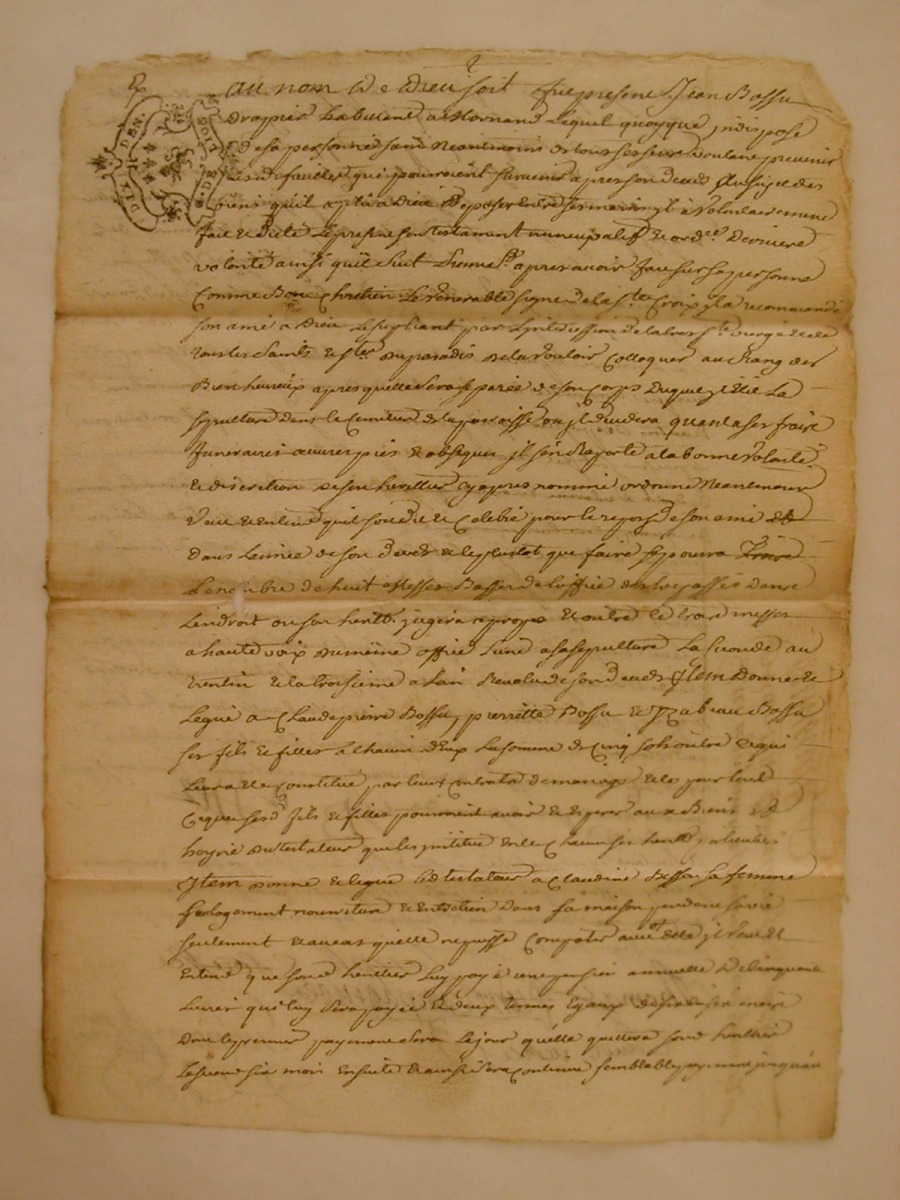 au nom de dieu soit fut present Jean Bossu
drapier habitant a Mornand lequel quoyque jndispose
de sa personne sain neantmoins de tous ses sens voulant prevenir
les qui pourroient survenir apres son deces au sujet des
biens qu'il a plu a dieu deposer entre ses mains jl a volontairement
fait et dicté le present son testament nuncupatif et ord.re derniere
volonté ainsi qu'il suit apres avoir fait sur sa personne
comme bon chretien le venerable signe de la s.te croix jl a recommandé
son ame a dieu le supliant par de la tres s.te vierge et de
tous les saints et s.tes du paradis de la vouloir colloquer au rang des
bien heureux apres quelle sera separée de son corps duquel jl elit la
sepulture dans le cimetiere de la paroisse ou jl decedera quant a ses fraix
funeraires œuvres pies et obseques jl s'en raporte a la bonne volonté
et discretion de son heritier cy apres nommé ordonne neantmoins
veut et entend qu'il soit dit et celebré pour le repos de son ame
dans l'année de son deces et le plustot que faire se pourra
le nombre de huit messes basses de l'office des trepassés dans
l'endroit ou son herit. jugera a propos et outre ce trois messes
a haute voix du même office l'une a sa sepulture la seconde au
trentin et la troisieme a l'an revolu de son deces Jtem donne et
legue a Claude pierre Bossu, pierrette Bossu et Ysabeau Bossu
ses fils et filles a chacun d'eux la somme de cinq sols outre ce qui
leur a eté constitué par leurs contrats de mariage et ce pour tout
ce que sesd. fils et filles pourroient avoir et esperer aux biens et
hoyrie du testateur qui les jnstitue en ce chacun ses herit. particuliers
Jtem donne et legue led testateur a Claudine sa femme
son logement nourriture et entretien dans sa maison pendant sa vie
seulement et au cas quelle ne puisse compatir avec jl veut et
entend que son d heritier luy paye une pension annuelle de cinquante
livres qui luy sera payée en deux termes egaux de six en six mois
dont le premier payement sera le jour quelle quittera son d heritier
le second six mois ensuite et ainsi sera continué semblable payement jusqu'au